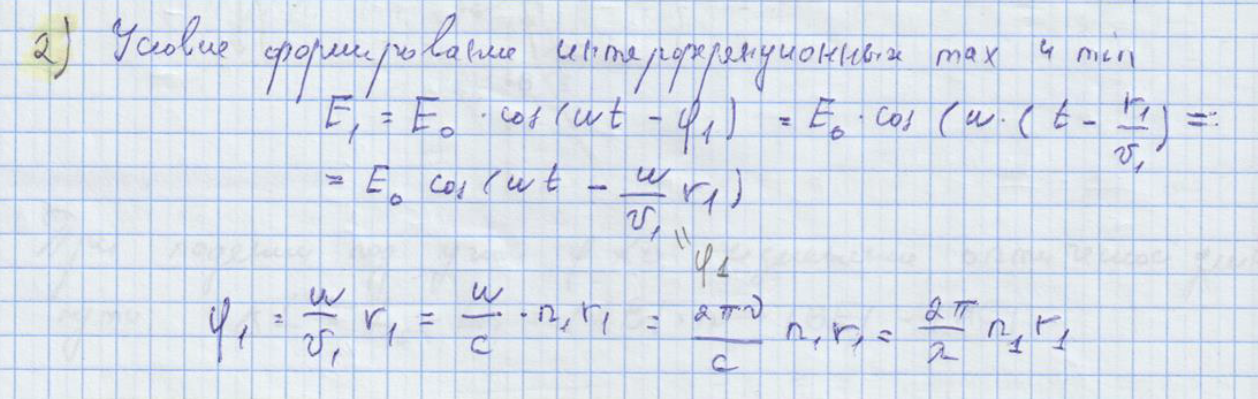 2) Условие формирование интерференционных max и min
E₁ = E₀ · cos(ωt - φ₁) = E₀ · cos (ω · (t - r₁/v₁) =
= E₀ cos(ωt - ω/v₁ r₁)
" φ₁
φ₁ = ω/v₁ r₁ = ω/c · n₁r₁ = 2πν/c n₁r₁ = 2π/λ n₁r₁